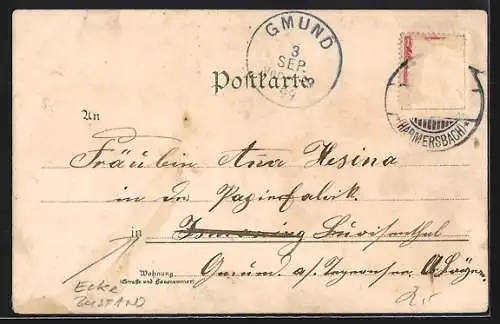 GMUND
3
SEP.
99
Postkarte
HARMERSBACH
An
Fräulein Anna Resina
in der Papierfabrik.
in Ismaning Luisenthal
Wohnung
(Straße und Hausnummer)
Gmund a/s Tegernsee
Ecke
ZUSTAND